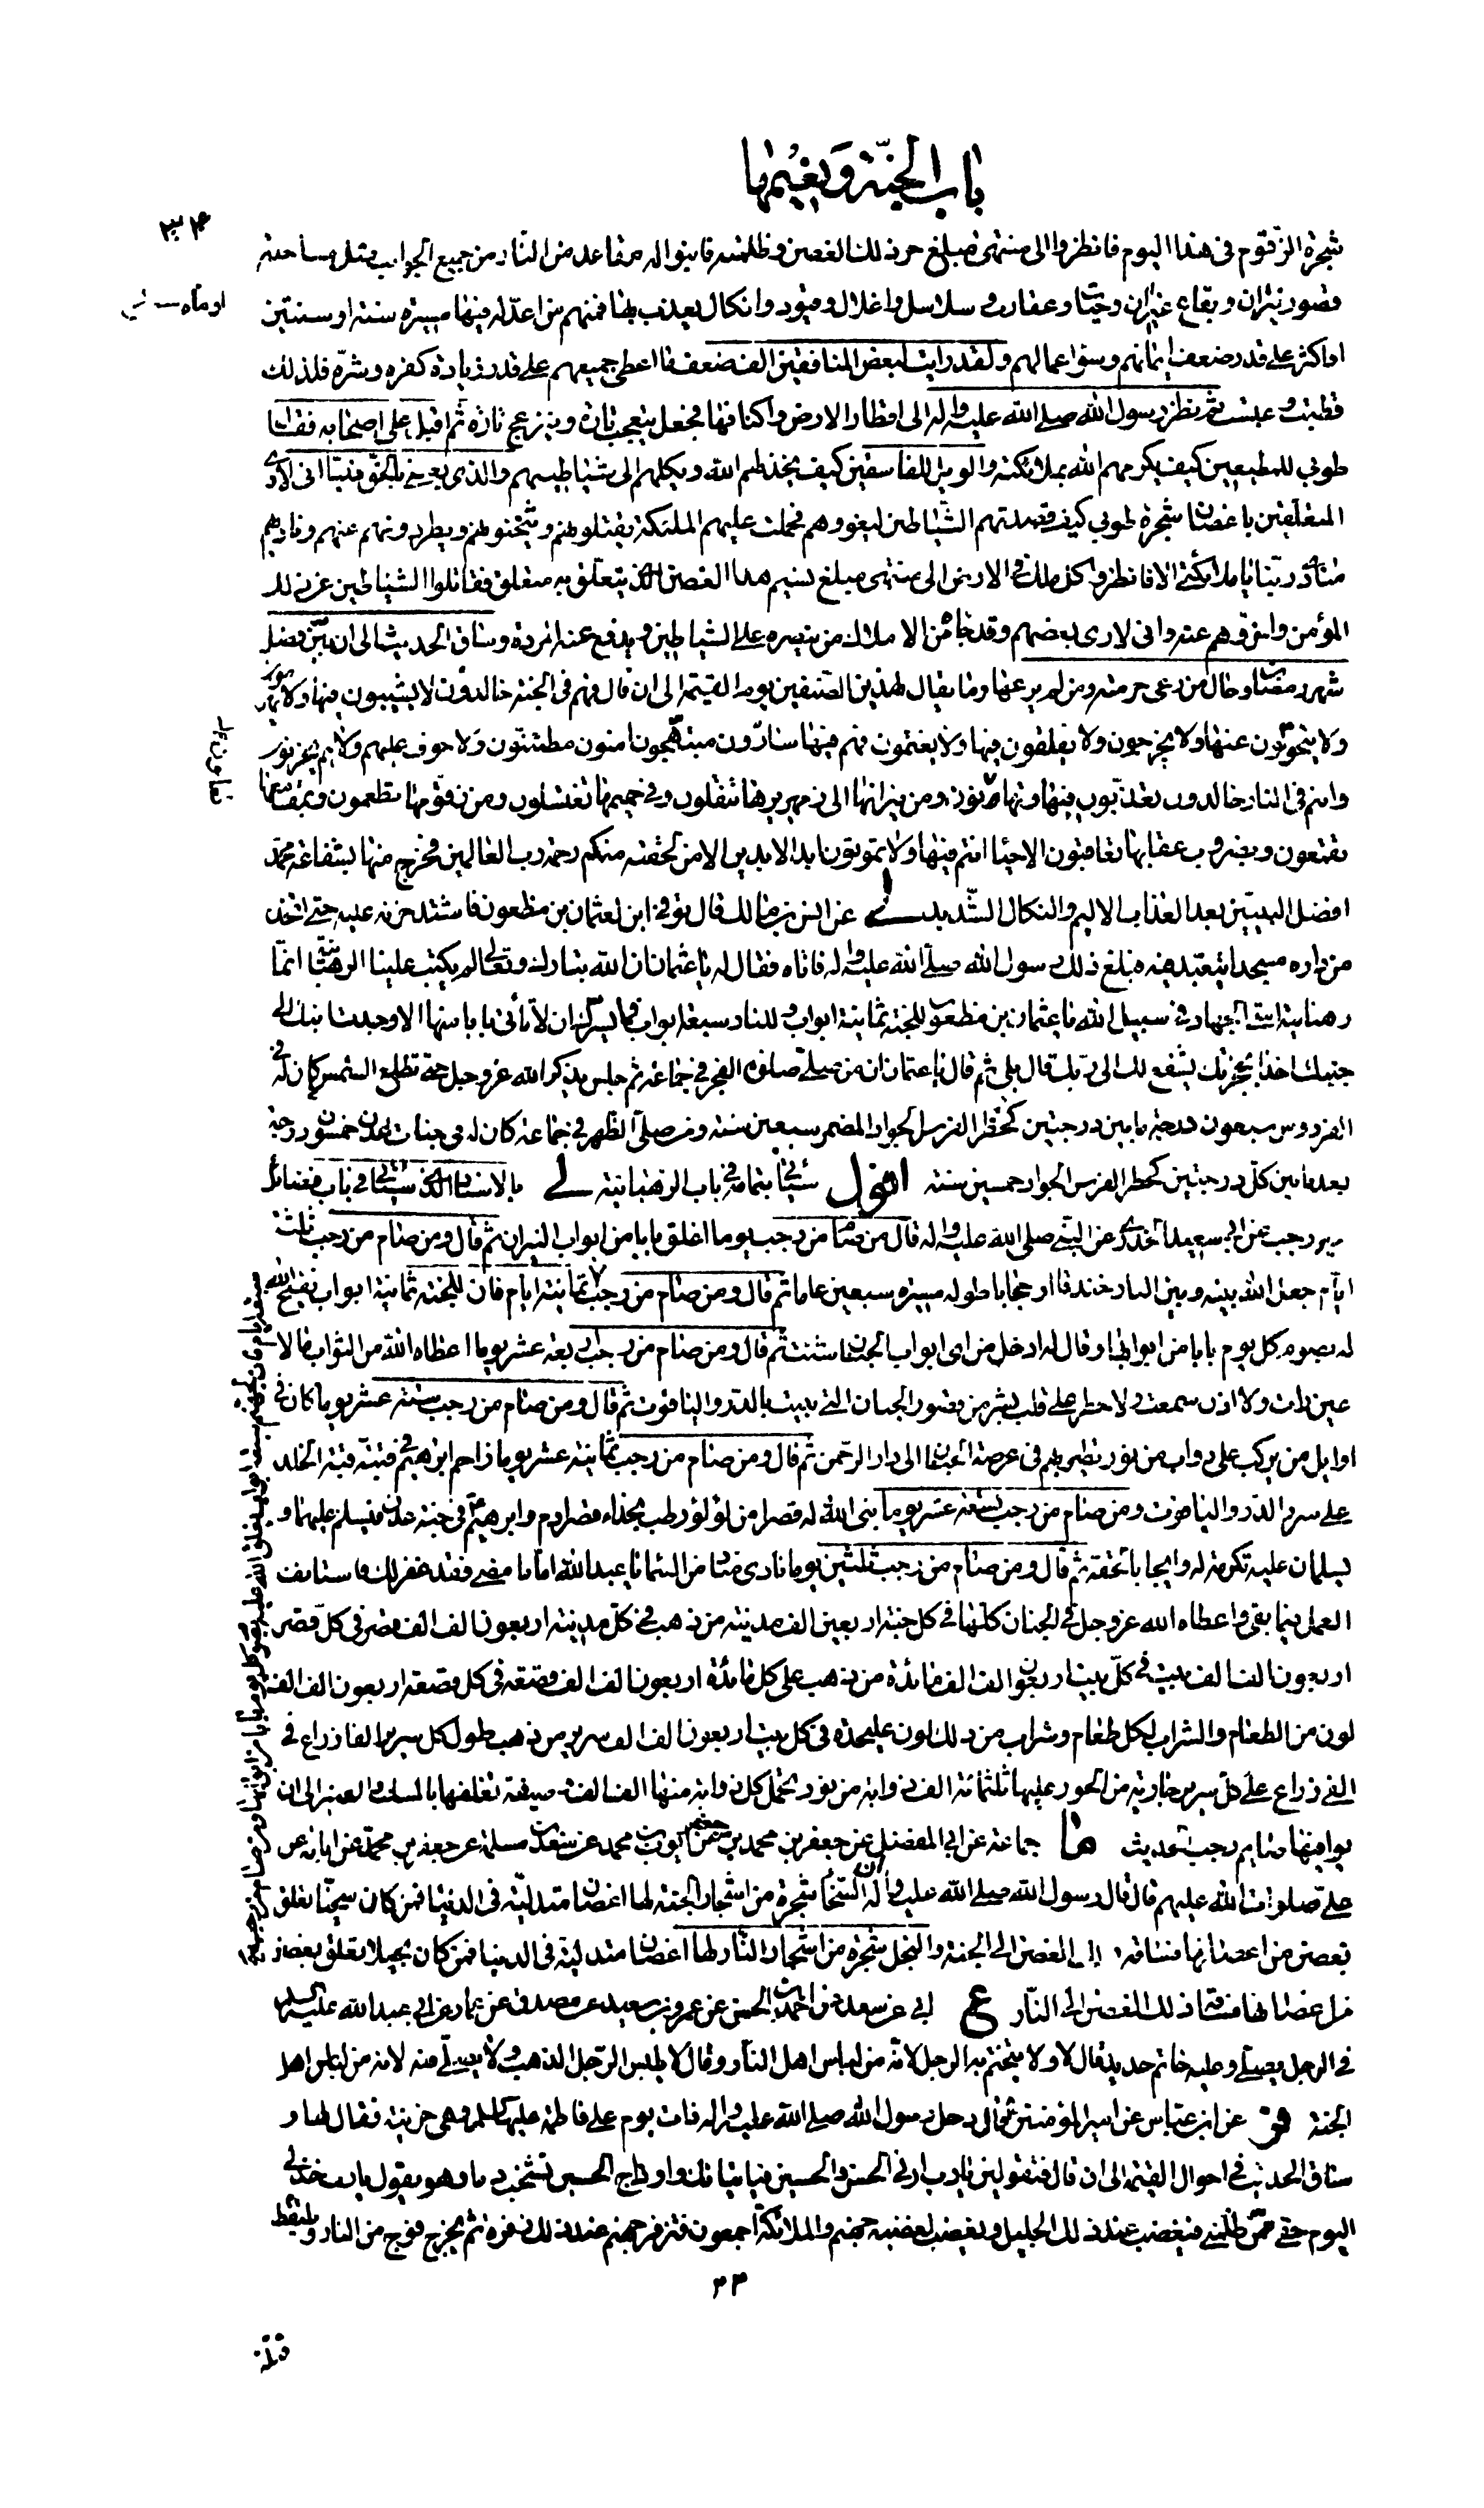 باب الجنّة و نعيمها
٣٣٤
شجرة الزقوم في هذا اليوم فانظروا الى منتهى مبلغ حر ذلك الغصن و ظلمته فابنوا له مقاعد من النّار من جميع الجوانب مثل مساحته
قصور نيران و بقاع غيران و حيّات و عقارب و سلاسل و اغلال و قيود و انكال يعذب بها فمنهم من اعدّ له فيها مسيرة سنة او سنتين
او مأة سنة
او اكثر على قدر ضعف ايمانهم و سوء اعمالهم و لقد رايت لبعض المنافقين الف ضعف ما اعطى جميعهم على قدر زيادة كفره و شرّه فلذلك
قطبت و عبست ثم نظر رسول الله صلى الله عليه و اله الى اقطار الارض و اكنافها فجعل يتعجب تارة و ينزعج تارة ثم اقبل على اصحابه فقال
طوبى للمطيعين كيف يكرمهم الله بملائكته و الويل للفاسقين كيف يخذلهم الله و يكلهم الى شياطينهم و الذي بعثني بالحق نبيّا اني لارى
المتعلّقين باغصان شجرة طوبى كيف قصدتهم الشياطين ليغووهم فحملت عليهم الملئكة يقتلونهم و يثخنونهم و يطردونهم عنهم و ناداهم
منادي ربنا يا ملائكتي الا فانظروا كل ملك في الارض الى منتهى مبلغ نسيم هذا الغصن الذي يتعلّق به متعلق فقاتلوا الشياطين عن ذلك
المؤمن و اخروهم عنه و اني لارى بعضهم و قد جاءه من الاملاك من ينصره على الشياطين و يدفع عنه المردة و ساق الحديث الى ان بيّن فضل
شهر رمضان و حال من رعى حرمته و من لم يرعها و ما يقال لهذين الصنفين يوم القيمة الى ان قال فهم في الجنة خالدون لا يشيبون فيها و لا يهرمون
و لا يتحولون عنها و لا يخرجون و لا يقلقون فيها و لا يغتمون فهم فيها سارّون مبتهجون امنون مطمئنون و لا خوف عليهم و لا هم يحزنون
و انتم في النار خالدون تعذّبون فيها و تهانون و من نيرانها الى زمهريرها تنقلون و في حميمها تغتسلون و من زقومها تطعمون و بمقامعها
تقمعون و بضروب عقابها تعاقبون الاحياء انتم فيها و لا تموتون ابد الابدين الا من لحقته منكم رحمة رب العالمين فخرج منها بشفاعة محمد
افضل النبيين بعد العذاب الاليم و النكال الشديد لي عن انس بن مالك قال توفي ابن لعثمان بن مظعون فاشتد حزنه عليه حتى اتخذ
من داره مسجدا يتعبد فيه فبلغ ذلك رسول الله صلى الله عليه و اله فاتاه فقال له يا عثمان ان الله تبارك و تعالى لم يكتب علينا الرهبانية انما
رهبانية امتي الجهاد في سبيل الله يا عثمان بن مظعون للجنة ثمانية ابواب و للنار سبعة ابواب فما يسرك ان لا تأتي بابا منها الا وجدت ابنك الى
جنبك اخذا بحجزتك يشفع لك الى ربك قال بلى ثم قال يا عثمان ان من صلى صلوة الفجر في جماعة ثم جلس يذكر الله عز و جل حتى تطلع الشمس كان له في
الفردوس سبعون درجة ما بين درجتين كحظر الفرس الجواد المضمر سبعين سنة و من صلى الظهر في جماعة كان له في جنات عدن خمسون درجة
بعد ما بين كل درجتين كحظر الفرس الجواد خمسين سنة اقول سيأتي بتمامه في باب الرهبانية لي بالاسناد الذي سيأتي في باب فضائل
رجب عن ابي سعيد الخدري عن النبي صلى الله عليه و اله قال من صام من رجب يوما اغلق بابا من ابواب النيران ثم قال و من صام من رجب ثلثة
ايّام جعل الله بينه و بين النار خندقا او حجابا طوله مسيرة سبعين عاما ثم قال و من صام من رجب ثمانية ايام فان للجنة ثمانية ابواب يفتح الله
له بصوم كل يوم بابا من ابوابها و قال له ادخل من اي ابواب الجنان شئت ثم قال و من صام من رجب اربعة عشر يوما اعطاه الله من الثواب ما لا
عين رات و لا اذن سمعت و لا خطر على قلب بشر من قصور الجنان التي بنيت بالدر و الياقوت ثم قال و من صام من رجب ستة عشر يوما كان في
اوايل من يركب على دواب من نور تطير بهم في عرصة الجنان الى دار الرحمن ثم قال و من صام من رجب ثمانية عشر يوما زاحم ابرهيم في قبته قبة الخلد
على سرر الدر و الياقوت و من صام من رجب تسعة عشر يوما بنى الله له قصرا من لؤلؤ رطب بحذاء قصر ادم و ابرهيم في جنة عدن فيسلم عليهما و
يسلمان عليه تكرمة له و ايجابا لحقه ثم قال و من صام من رجب ثلثين يوما نادى مناد من السماء يا عبد الله اما ما مضى فقد غفر لك فاستانف
العمل فيما بقي و اعطاه الله عز و جل في الجنان كلها في كل جنة اربعين الف مدينة من ذهب في كل مدينة اربعون الف الف قصر في كل قصر
اربعون الف الف بيت في كل بيت اربعون الف الف مائدة من ذهب على كل مائدة اربعون الف الف قصعة في كل قصعة اربعون الف الف
لون من الطعام و الشراب لكل طعام و شراب من ذلك لون عليحدة في كل بيت اربعون الف الف سرير من ذهب طول كل سرير الفا ذراع في
الفي ذراع على كل سرير جارية من الحور عليها ثلثمائة الف ذوابة من نور تحمل كل ذوابة منها الف الف وصيفة تغلفها بالمسك و العنبر الى ان
يوافيها صايم رجب الحديث ما جماعة عن ابي المفضل عن جعفر بن محمد بن جعفر عن ايوب بن محمد عن سعد بن مسلمة عن جعفر بن محمد عن ابائه عن
علي صلوات الله عليهم قال قال رسول الله صلى الله عليه و اله ان السخاء شجرة من اشجار الجنة لها اغصان متدلية في الدنيا فمن كان سخيا تعلق
بغصن من اغصانها فساقه ذلك الغصن الى الجنة و البخل شجرة من اشجار النار لها اغصان متدلية في الدنيا فمن كان بخيلا تعلق بغصن
من اغصانها فساقه ذلك الغصن الى النّار ع ابي عن سعد عن احمد بن الحسن عن عمرو بن سعيد عن مصدق عن عمار عن ابي عبد الله عليه السلم
في الرجل يصلي و عليه خاتم حديد قال لا و لا يتختم به الرجل لانه من لباس اهل النار و قال لا يلبس الرجل الذهب و لا يصلي فيه لانه من لباس اهل
الجنة فر عن ابن عباس عن امير المؤمنين قال دخل رسول الله صلى الله عليه و اله ذات يوم على فاطمة عليها السلم و هي حزينة فقال لها و
ساق الحديث في احوال القيمة الى ان قال فتقولين يا رب ارني الحسن و الحسين فياتيانك و اوداج الحسين تشخب دما و هو يقول يا رب خذ لي
اليوم حقي ممن ظلمني فيغضب عند ذلك الجليل و يغضب لغضبه جهنم و الملائكة اجمعون فتزفر جهنم عند ذلك زفرة ثم يخرج فوج من النار و يلتقط
٣٣
قتلة